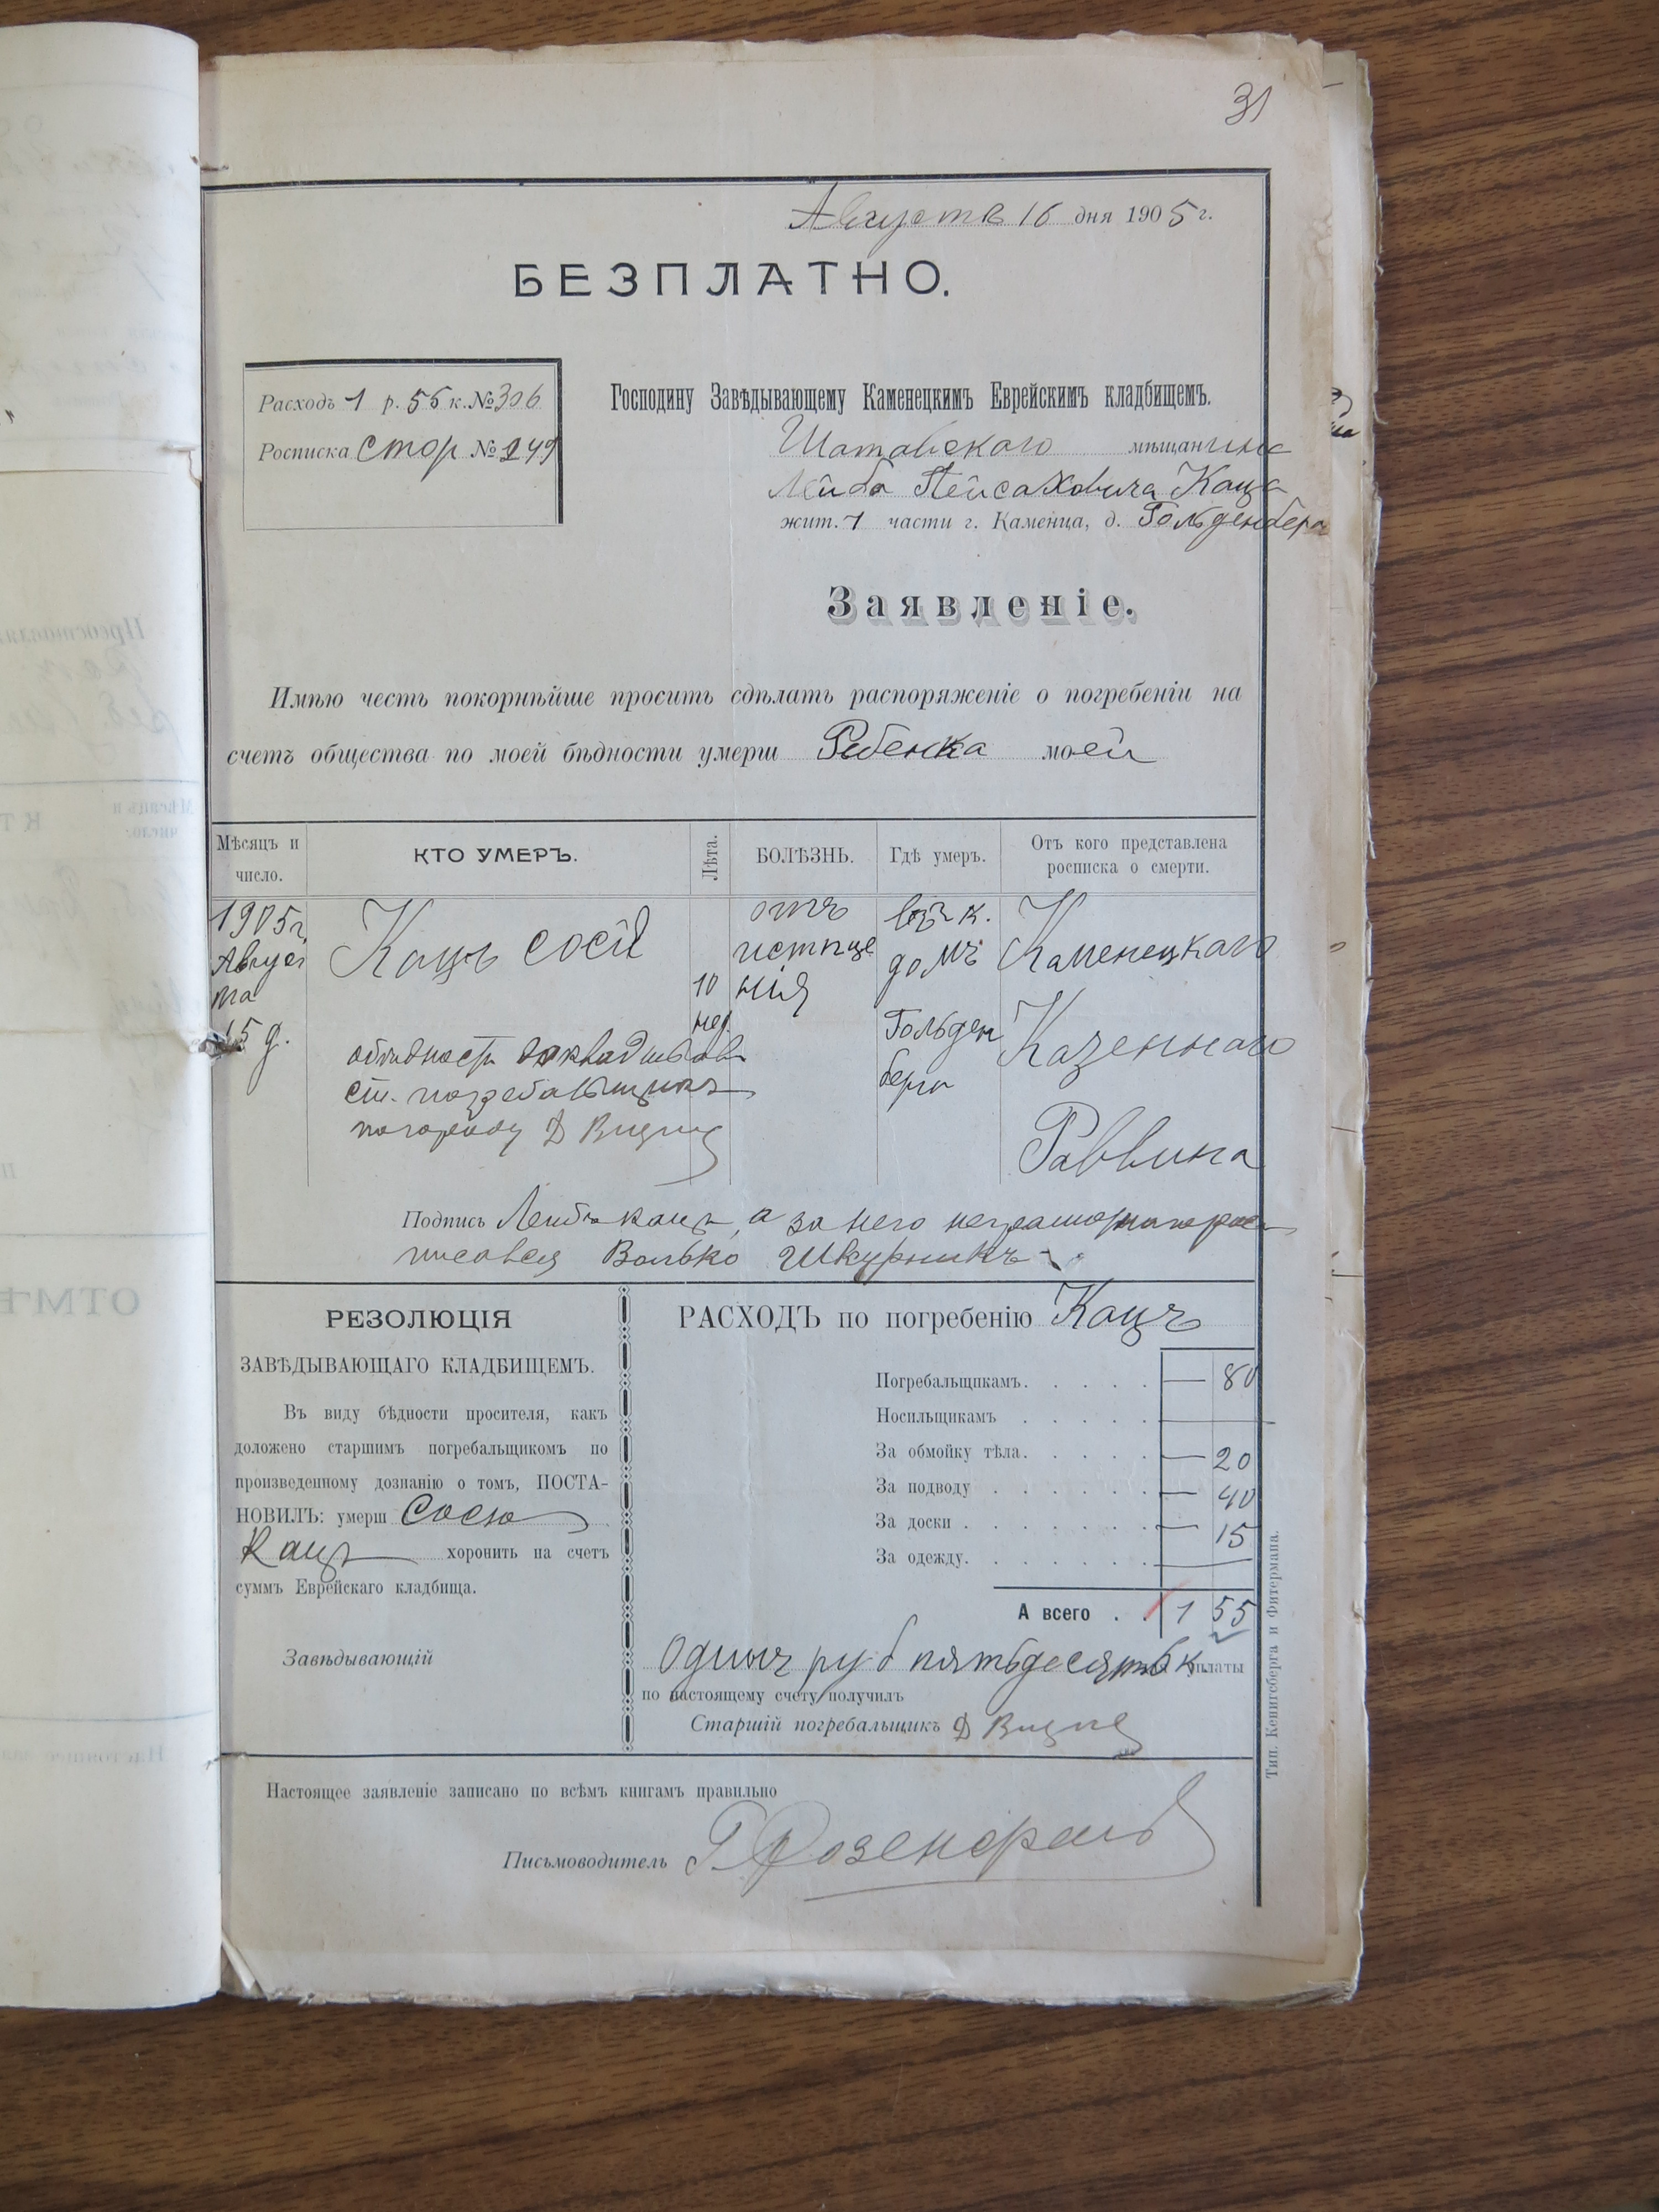 31
Августа 16 дня 1905 г.
БЕЗПЛАТНО.
Расходъ 1 р. 55 к. № 306
Росписка стор № 249
Господину Завѣдывающему Каменецкимъ Еврейскимъ кладбищемъ.
Шатавского мѣщанина
Лейба Пейсаховича Каца
жит. 1 части г. Каменца, д. Гольденберга
Заявленіе.
Имѣю честь покорнѣйше просить сдѣлать распоряженіе о погребеніи на
счетъ общества по моей бѣдности умерш Ребенка моей
Мѣсяцъ и число.
КТО УМЕРЪ.
Лѣта.
БОЛѢЗНЬ.
Гдѣ умеръ.
Отъ кого представлена росписка о смерти.
1905 г.
Авгус
та
15 д.
Кацъ Сося
10
нед.
отъ
истоще
нія
домѣ
Гольден
берга
Каменецкаго
Казеннаго
Раввина
обѣдности докладываю
ст. погребальщикъ
Подпись Лейба Кацъ, а за него неграмотнаго рос
писался Волько Шкурникъ
РЕЗОЛЮЦІЯ
ЗАВѢДЫВАЮЩАГО КЛАДБИЩЕМЪ.
Въ виду бѣдности просителя, какъ
доложено старшимъ погребальщикомъ по
произведенному дознанію о томъ, ПОСТА-
НОВИЛЪ: умерш Сосю
Кацъ хоронить на счетъ
суммъ Еврейскаго кладбища.
Завѣдывающій
РАСХОДЪ по погребенію Кацъ
Погребальщикамъ. . . . . — 80
Носильщикамъ . . . . . —
За обмойку тѣла. . . . . — 20
За подводу . . . . . . — 40
За доски . . . . . . . — 15
За одежду. . . . . . . —
А всего . . 1 55
Одинъ руб пятьдесятъ 5 к платы
по настоящему счету получилъ
Старшій погребальщикъ Д
Настоящее заявленіе записано по всѣмъ книгамъ правильно
Письмоводитель Г. Розенфельд
Тип. Кенигсберга и Фитермана.